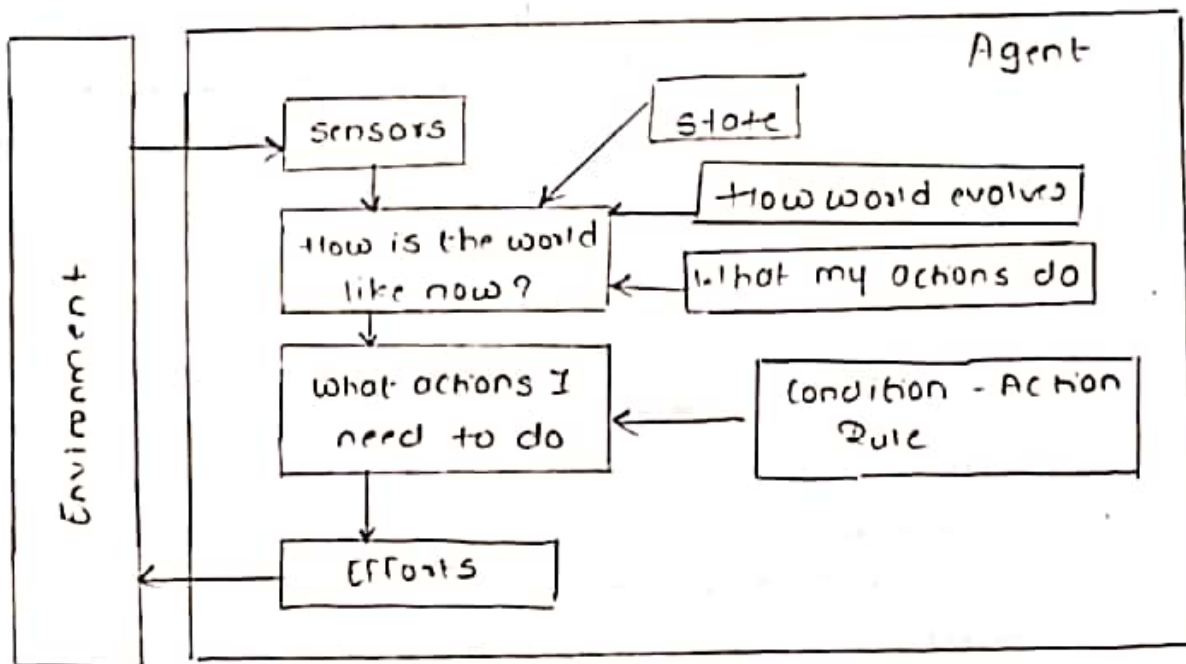 Agent
Sensors
State
How world evolves
How is the world
like now?
What my actions do
What actions I
need to do
Condition - Action
Rule
Efforts
Environment